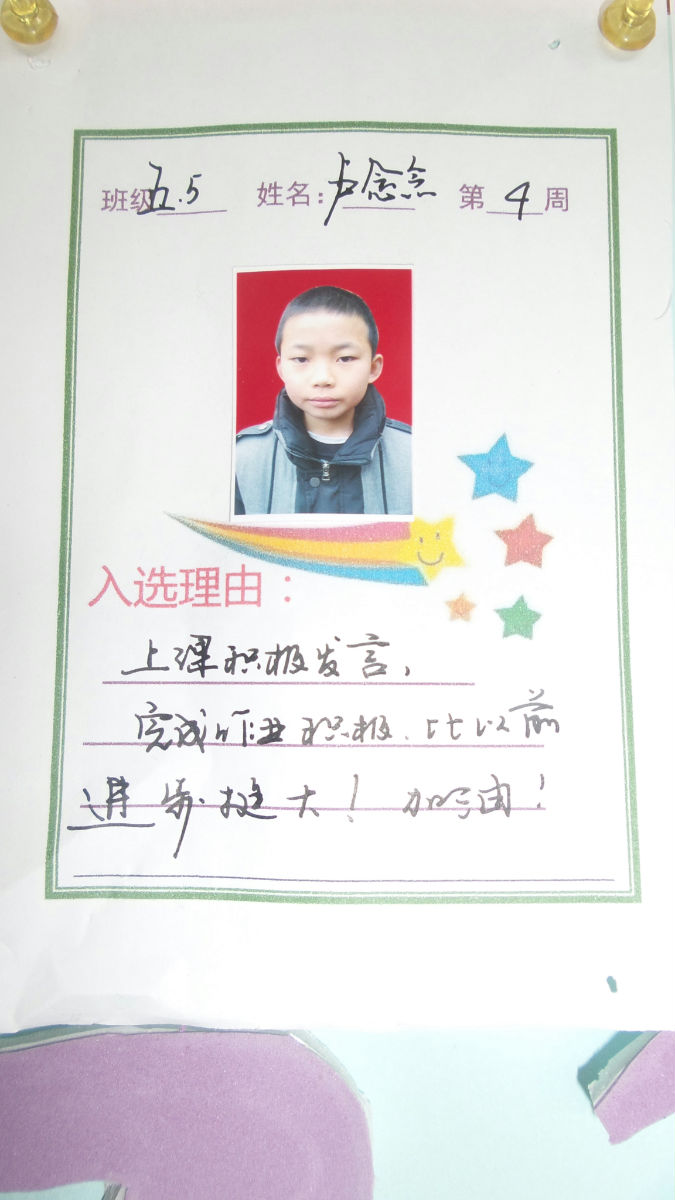 班级五.5 姓名：卢念念 第4周
入选理由：
上课积极发言，
完成作业积极．比以前
进步挺大！加油！